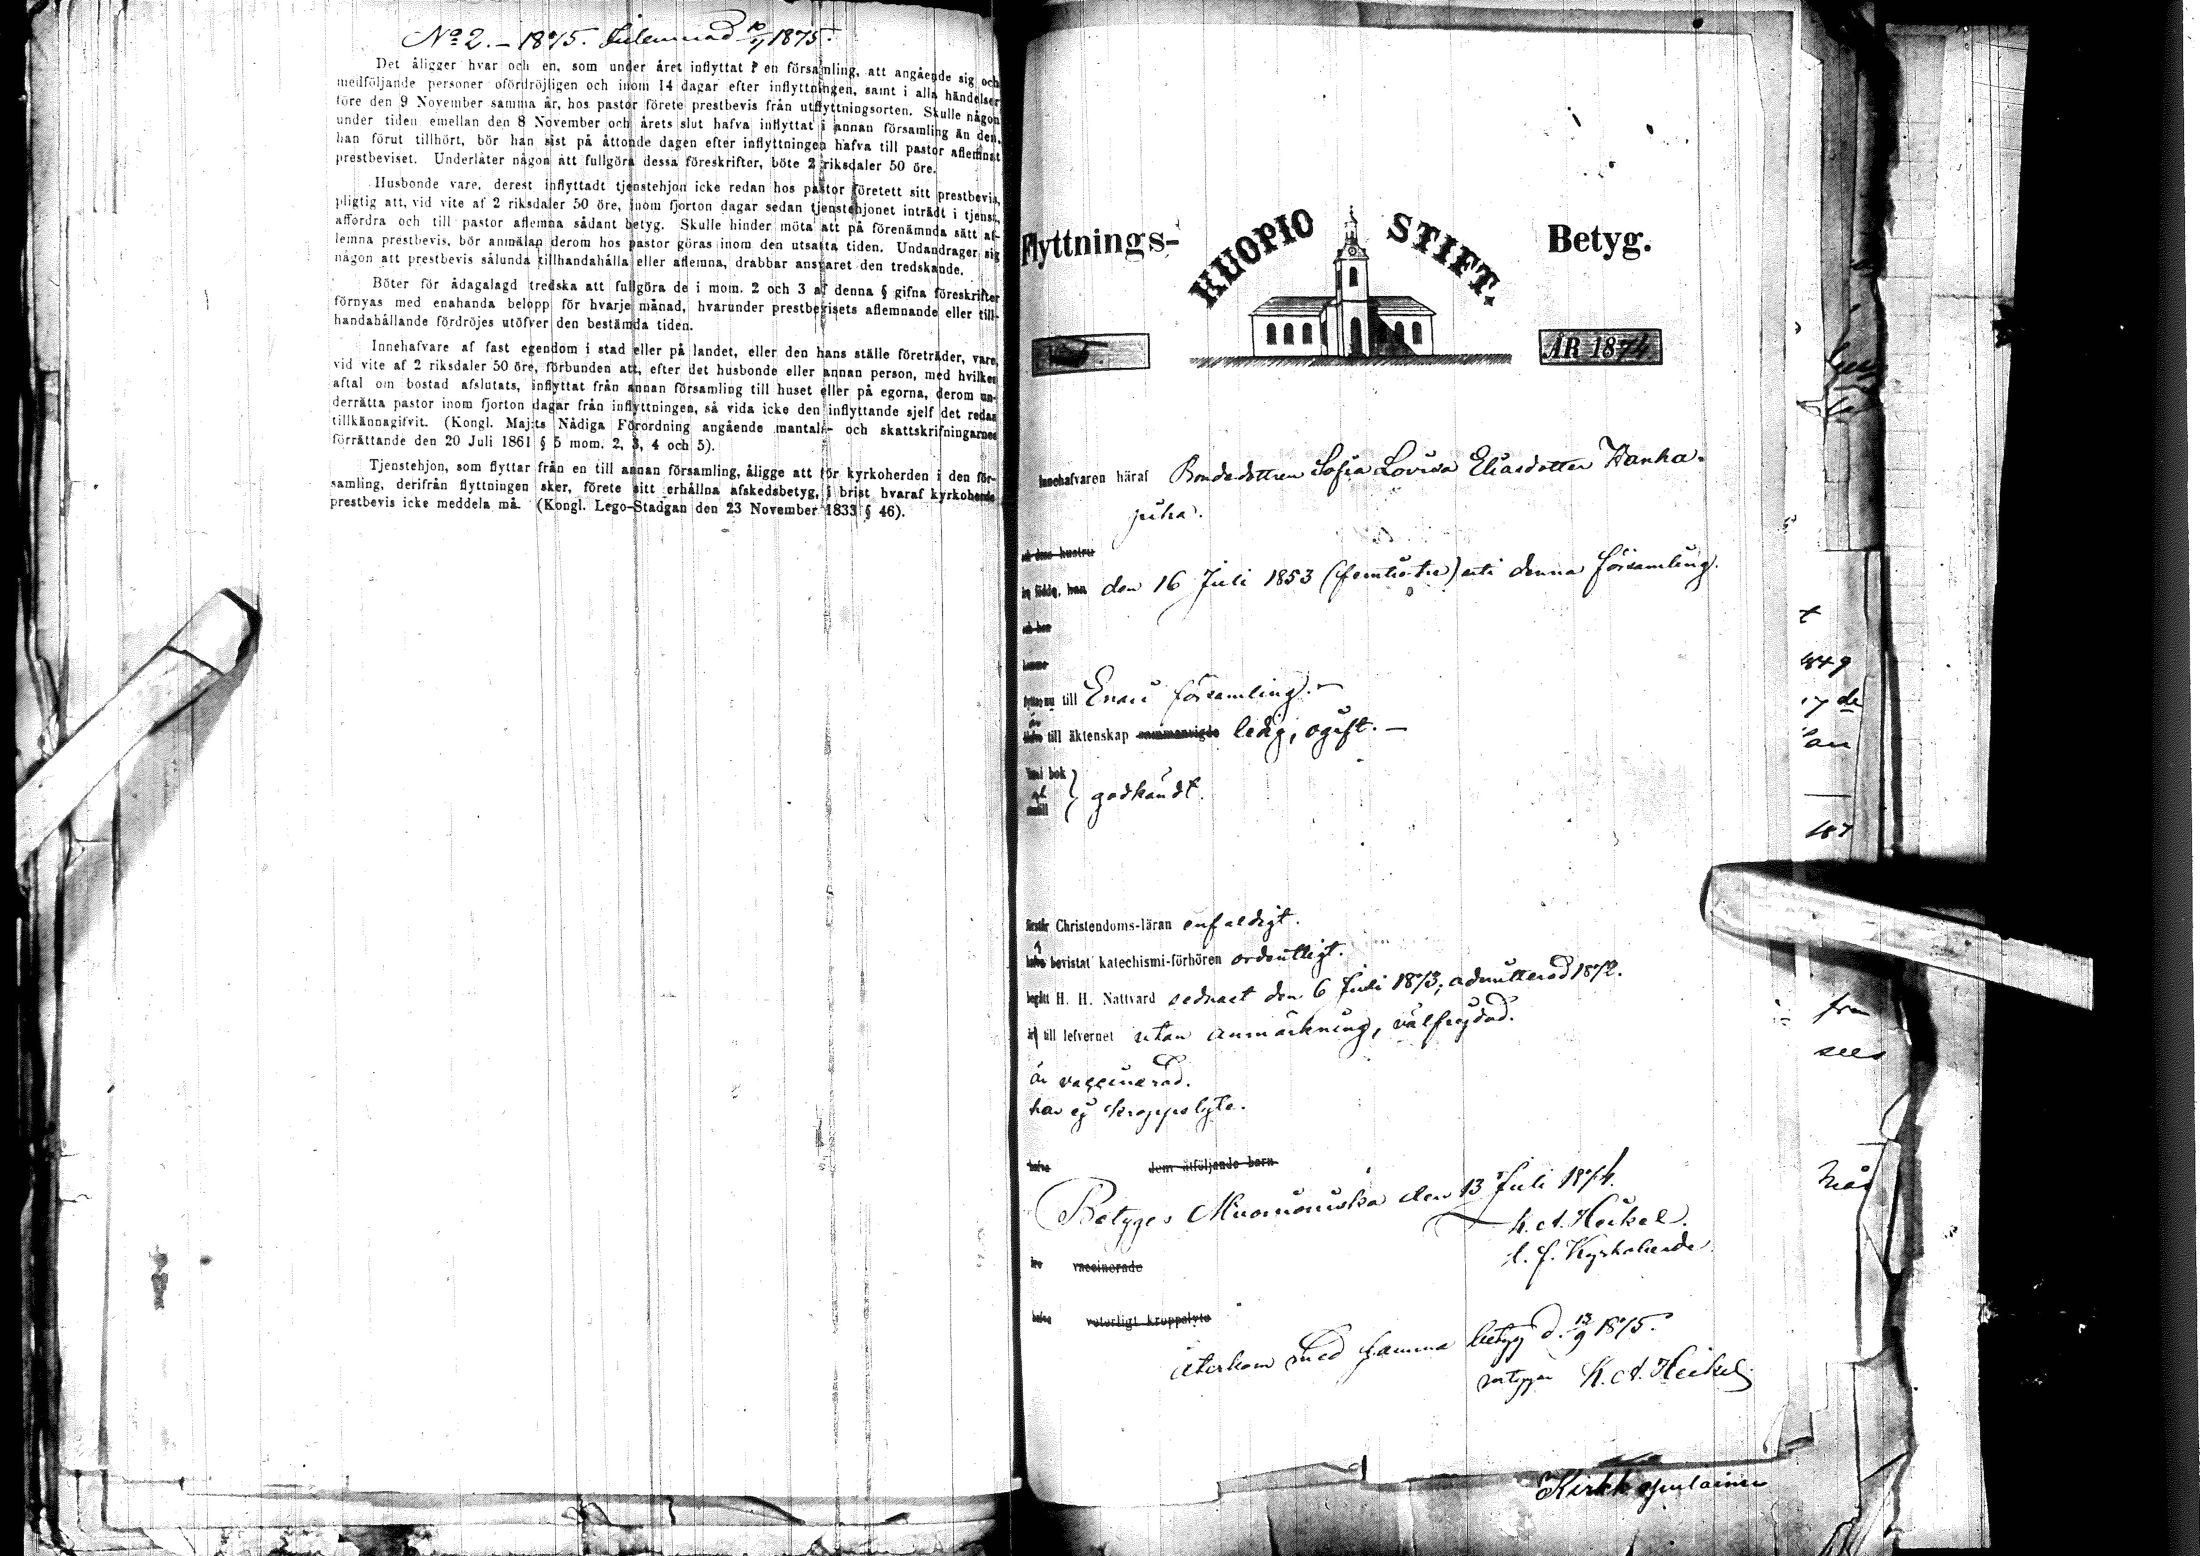 No 2. – 1875. Inlemnad 12/9 1875.
Det åligger hvar och en, som under året inflyttat i en församling, att angående sig och
medföljande personer ofördröjligen och inom 14 dagar efter inflyttningen, samt i alla händelser
före den 9 November samma år, hos pastor förete prestbevis från utflyttningsorten. Skulle någon
under tiden emellan den 8 November och årets slut hafva inflyttat i annan församling än den,
han förut tillhört, bör han sist på åttonde dagen efter inflyttningen hafva till pastor aflemnat
prestbeviset. Underlåter någon att fullgöra dessa föreskrifter, böte 2 riksdaler 50 öre.
Husbonde vare, derest inflyttadt tjenstehjon icke redan hos pastor företett sitt prestbevis,
pligtig att, vid vite af 2 riksdaler 50 öre, inom fjorton dagar sedan tjenstehjonet inträdt i tjenst,
affordra och till pastor aflemna sådant betyg. Skulle hinder möta att på förenämnda sätt af-
lemna prestbevis, bör anmälan derom hos pastor göras inom den utsatta tiden. Undandrager sig
någon att prestbevis sålunda tillhandahålla eller aflemna, drabbar ansvaret den tredskande.
Böter för ådagalagd tredska att fullgöra de i mom. 2 och 3 af denna § gifna föreskrifter
förnyas med enahanda belopp för hvarje månad, hvarunder prestbevisets aflemnande eller till-
handahållande fördröjes utöfver den bestämda tiden.
Innehafvare af fast egendom i stad eller på landet, eller den hans ställe företräder, vare,
vid vite af 2 riksdaler 50 öre, förbunden att, efter det husbonde eller annan person, med hvilken
aftal om bostad afslutats, inflyttat från annan församling till huset eller på egorna, derom un-
derrätta pastor inom fjorton dagar från inflyttningen, så vida icke den inflyttande sjelf det redan
tillkännagifvit. (Kongl. Maj:ts Nådiga Förordning angående mantals- och skattskrifningarnes
förrättande den 20 Juli 1861 § 5 mom. 2, 3, 4 och 5).
Tjenstehjon, som flyttar från en till annan församling, åligge att för kyrkoherden i den för-
samling, derifrån flyttningen sker, förete sitt erhållna afskedsbetyg, i brist hvaraf kyrkoherde
prestbevis icke meddela må. (Kongl. Lego-Stadgan den 23 November 1833 § 46).
Flyttnings- KUOPIO STIFT. Betyg.
ÅR 1874
Innehafvaren häraf Bondedottren Sofia Lovisa Eliasdotter Wanha-
piha.
och dess hustru
den 16 Juli 1853 (femtiotre) uti denna församling.
nu till Enari församling. –
är till äktenskap sammanvigde ledig, ogift. –
bok
godkändt.
förstår Christendoms-läran enfaldigt.
bevistat katechismi-förhören ordentligt.
begått H. H. Nattvard sednast den 6 Juli 1873, admitterad 1872.
är till lefvernet utan anmärkning, välfrejdad.
är vaccinerad.
har ej kroppslyte.
hafva dem åtföljande barn
Betygas Muonioniska den 13 Juli 1874.
K. A. Heikel.
t. f. Kyrkoherde.
äro vaccinerade
hafva veterligt kroppslyte
Återkom med samma betyg d. 12/9 1875.
betygar K. A. Heikel